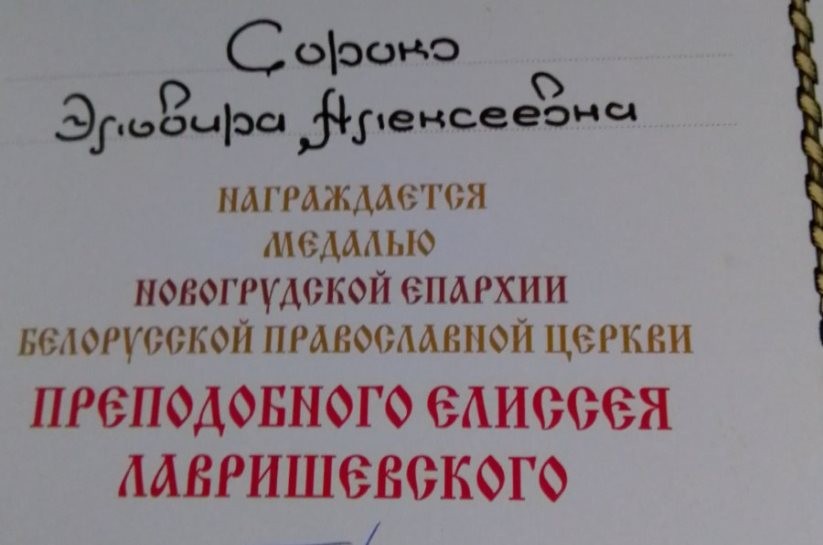 Сороко
Эльвира Алексеевна
НАГРАЖДАЕТСЯ
МЕДАЛЬЮ
НОВОГРУДСКОЙ ЕПАРХИИ
БЕЛОРУССКОЙ ПРАВОСЛАВНОЙ ЦЕРКВИ
ПРЕПОДОБНОГО ЕЛИССЕЯ
ЛАВРИШЕВСКОГО